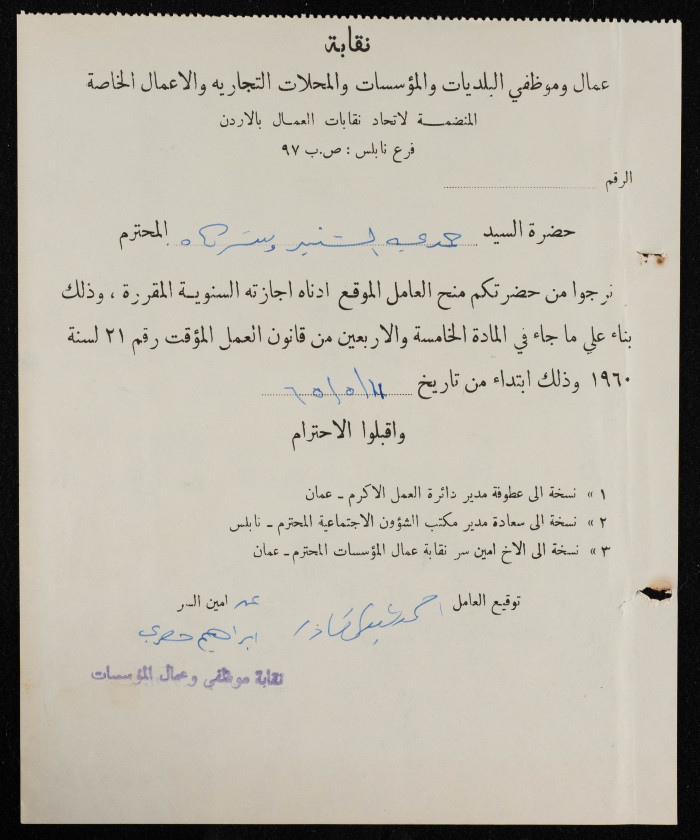 نقابة
عمال وموظفي البلديات والمؤسسات والمحلات التجاريه والاعمال الخاصة
المنضمة لاتحاد نقابات العمال بالاردن
فرع نابلس : ص.ب ٩٧
الرقم
حضرة السيد حمدي وشركاه المحترم
نرجوا من حضرتكم منح العامل الموقع ادناه اجازته السنوية المقررة ، وذلك
بناء علي ما جاء في المادة الخامسة والاربعين من قانون العمل المؤقت رقم ٢١ لسنة
١٩٦٠ وذلك ابتداء من تاريخ
واقبلوا الاحترام
١ » نسخة الى عطوفة مدير دائرة العمل الاكرم ـ عمان
٢ » نسخة الى سعادة مدير مكتب الشؤون الاجتماعية المحترم ـ نابلس
٣ » نسخة الى الاخ امين سر نقابة عمال المؤسسات المحترم ـ عمان
توقيع العامل
احمد
عن امين السر
ابراهيم
نقابة موظفي وعمال المؤسسات